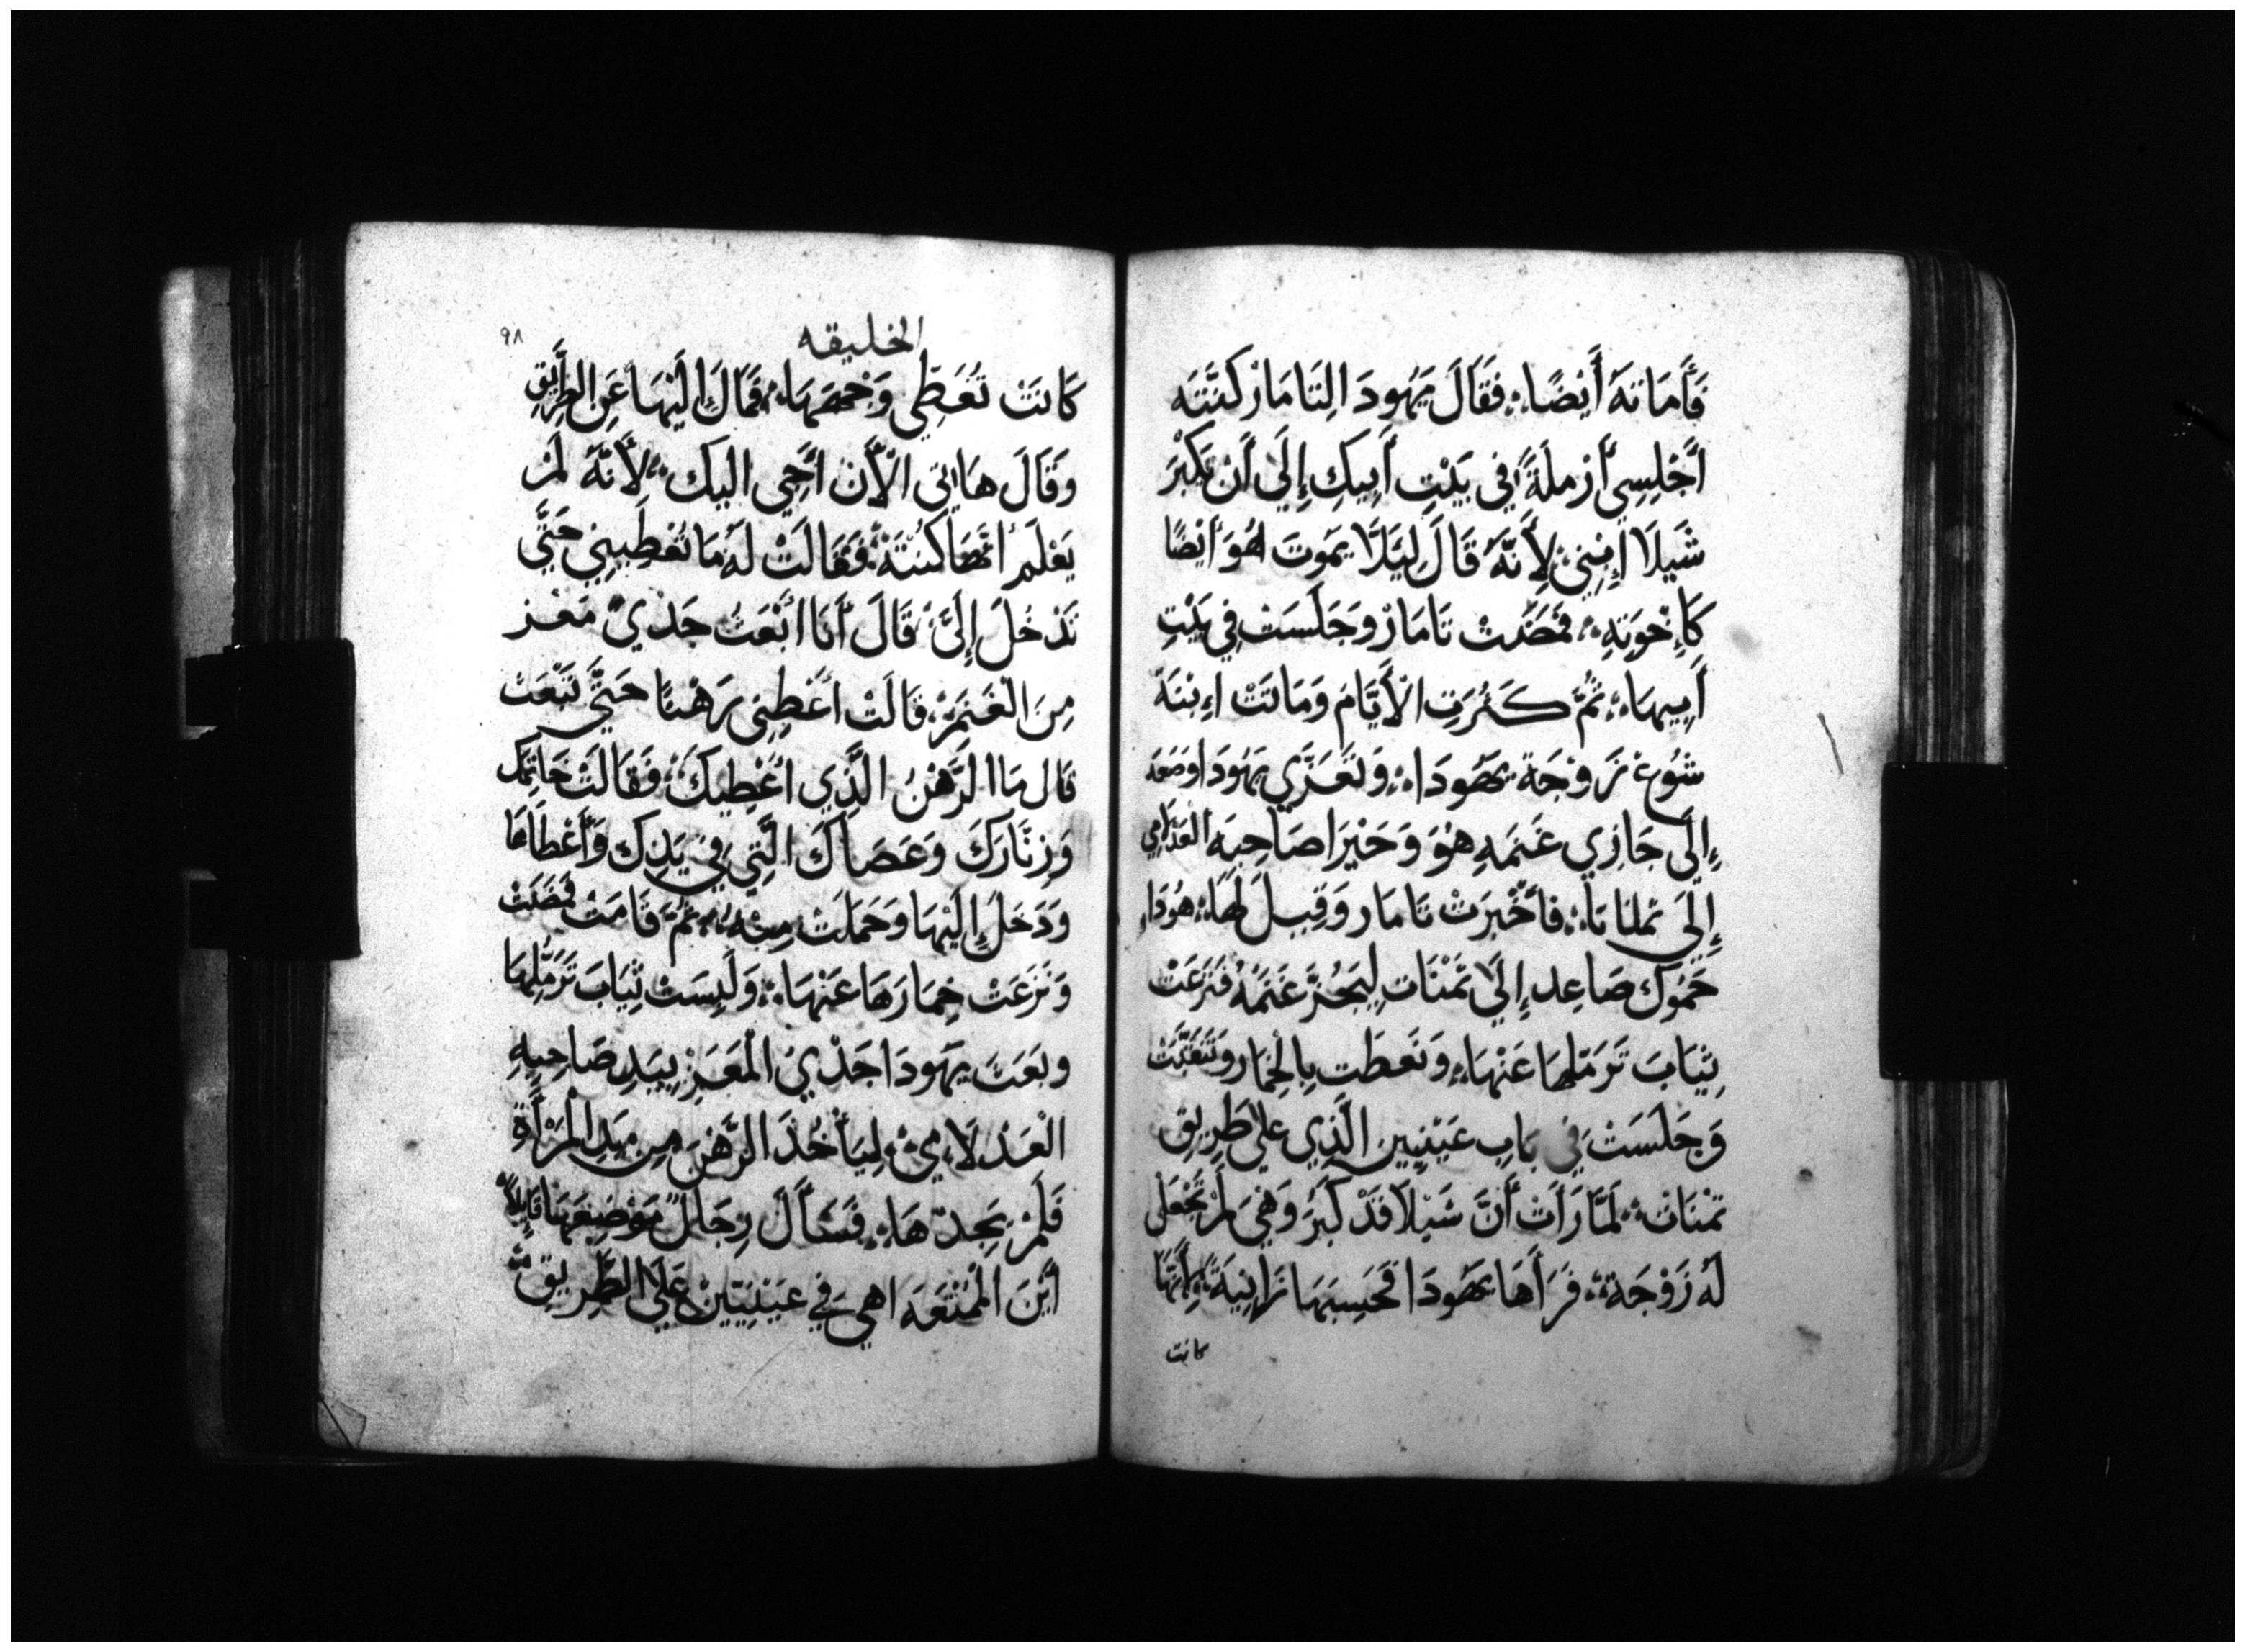 فَأَمَاتَهُ أَيْضًا ؞ فَقَالَ يَهُودَا لِتَامَارْ كَنَّتَه
أَجْلِسِي أَرْمِلَةً فِي بَيْتِ أَبِيكِ إِلَي أَنْ يَكْبَرَ
شَيلَا اِبْنِي لِأَنَّهُ قَالَ لِيَلَّا يَمَوتَ هُوَ أَيْضًا
كَإِخْوَتِهِ ؞ فَمَضَتْ تَامَارْ وَجَلَسَتْ فِي بَيْتِ
أَبِيهَا ؞ ثُمَّ كَثُرَتِ الْأَيَّامُ وَمَاتَتْ اِبْنَة
شُوع زَوْجَة يَهُودَا ؞ وَتَعَزَّي يَهُودَا وصَعَد
إِلَى جَازِي غَنَمَهِ هُوَ وَحَيْرَا صَاحِبَه العَدْلَامِي
إِلَي تملنَاتا ؞ فَأُخْبِرَتْ تَامَار وَقِيلَ لَهَا ؞ هُوَدَا
حَمُوكَ صَاعِد إِلَي تَمْنَاتِ لِيَجُزَّ غَنَمَهُ فَنَزَعَتْ
ثِيَابَ تَرَمُّلِهَا عَنْهَا ؞ وَتَغطَت بِالْخِمَار وَتَنَقَّبَتْ
وَجَلَسَتْ فِي بَابِ عَيْنِيين الَّذِي علي طَرِيقِ
تمْنَات ؞ لَمَّا رَأَتْ أَنَّ شَيْلَا قَدْ كَبَرَ وَهِيَ لَمْ تُجْعَل
لَهُ زَوْجَة ؞ فَرَأَهَا يَهُودَا فَحَسِبَهَا زَانِيَةً لِأَنَّهَا
كانت
الخليقه
٩٨
كَانَتْ تُغَطِّي وَجْهَهَا ؞ فَمَالَ إِلَيْهَا عَنِ الطَرِيقِ
وَقَالَ هَاتِي الْأَن أَجِي اليك ؞ لِأَنَّهُ لَمْ
يَعْلَم أَنَّهَا كَنَّتَهُ ؞ فَقَالَتْ لَهُ مَا تُعْطِينِي حَتَّي
تَدْخُلَ إِلَيَّ ؞ قَالَ أَنَا اَبْعَثُ جَدْيَ مَعْز
مِنَ الْغَنَمْ ؞ قَالَتْ أَعْطِنِي رَهْنًا حَتَّي تَبْعَثْ
قال مَا الرَّهْنُ الَّذِي اُعْطِيكَ ؞ فَقَالَتْ خَاتِمَك
وَزِنَّارَكَ وَعَصَاكَ الَّتِي فِي يَدِكَ وَأَعْطَاهَا
وَدَخَلَ إِلَيْهَا وَحَمَلَتْ مِنْهُ ؞ ثُمَّ قَامَتْ فَمَضَتْ
وَنَزَعَتْ خِمَارَهَا عَنْهَا ؞ وَلَبِسَتْ ثِيَابَ تَرَمُّلِهَا
وبَعَثَ يَهُودَا جَدْيَ الْمَعَزِ بِيَدِ صَاحِبِهِ
الْعَدْلَامِيْ لِيَأْخُذَ الرَّهْنَ مِن يَدِ الْمَرْأَةِ
فَلَمْ يَجِدْهَا ؞ فَسَأَلَ رِجَالَ مَوْضِعَهَا قَايِلًا
أَيْنَ الْمُتْعَه اهِيَ فِي عَيْنِيّينْ عَلَي الطَّرِيقِ